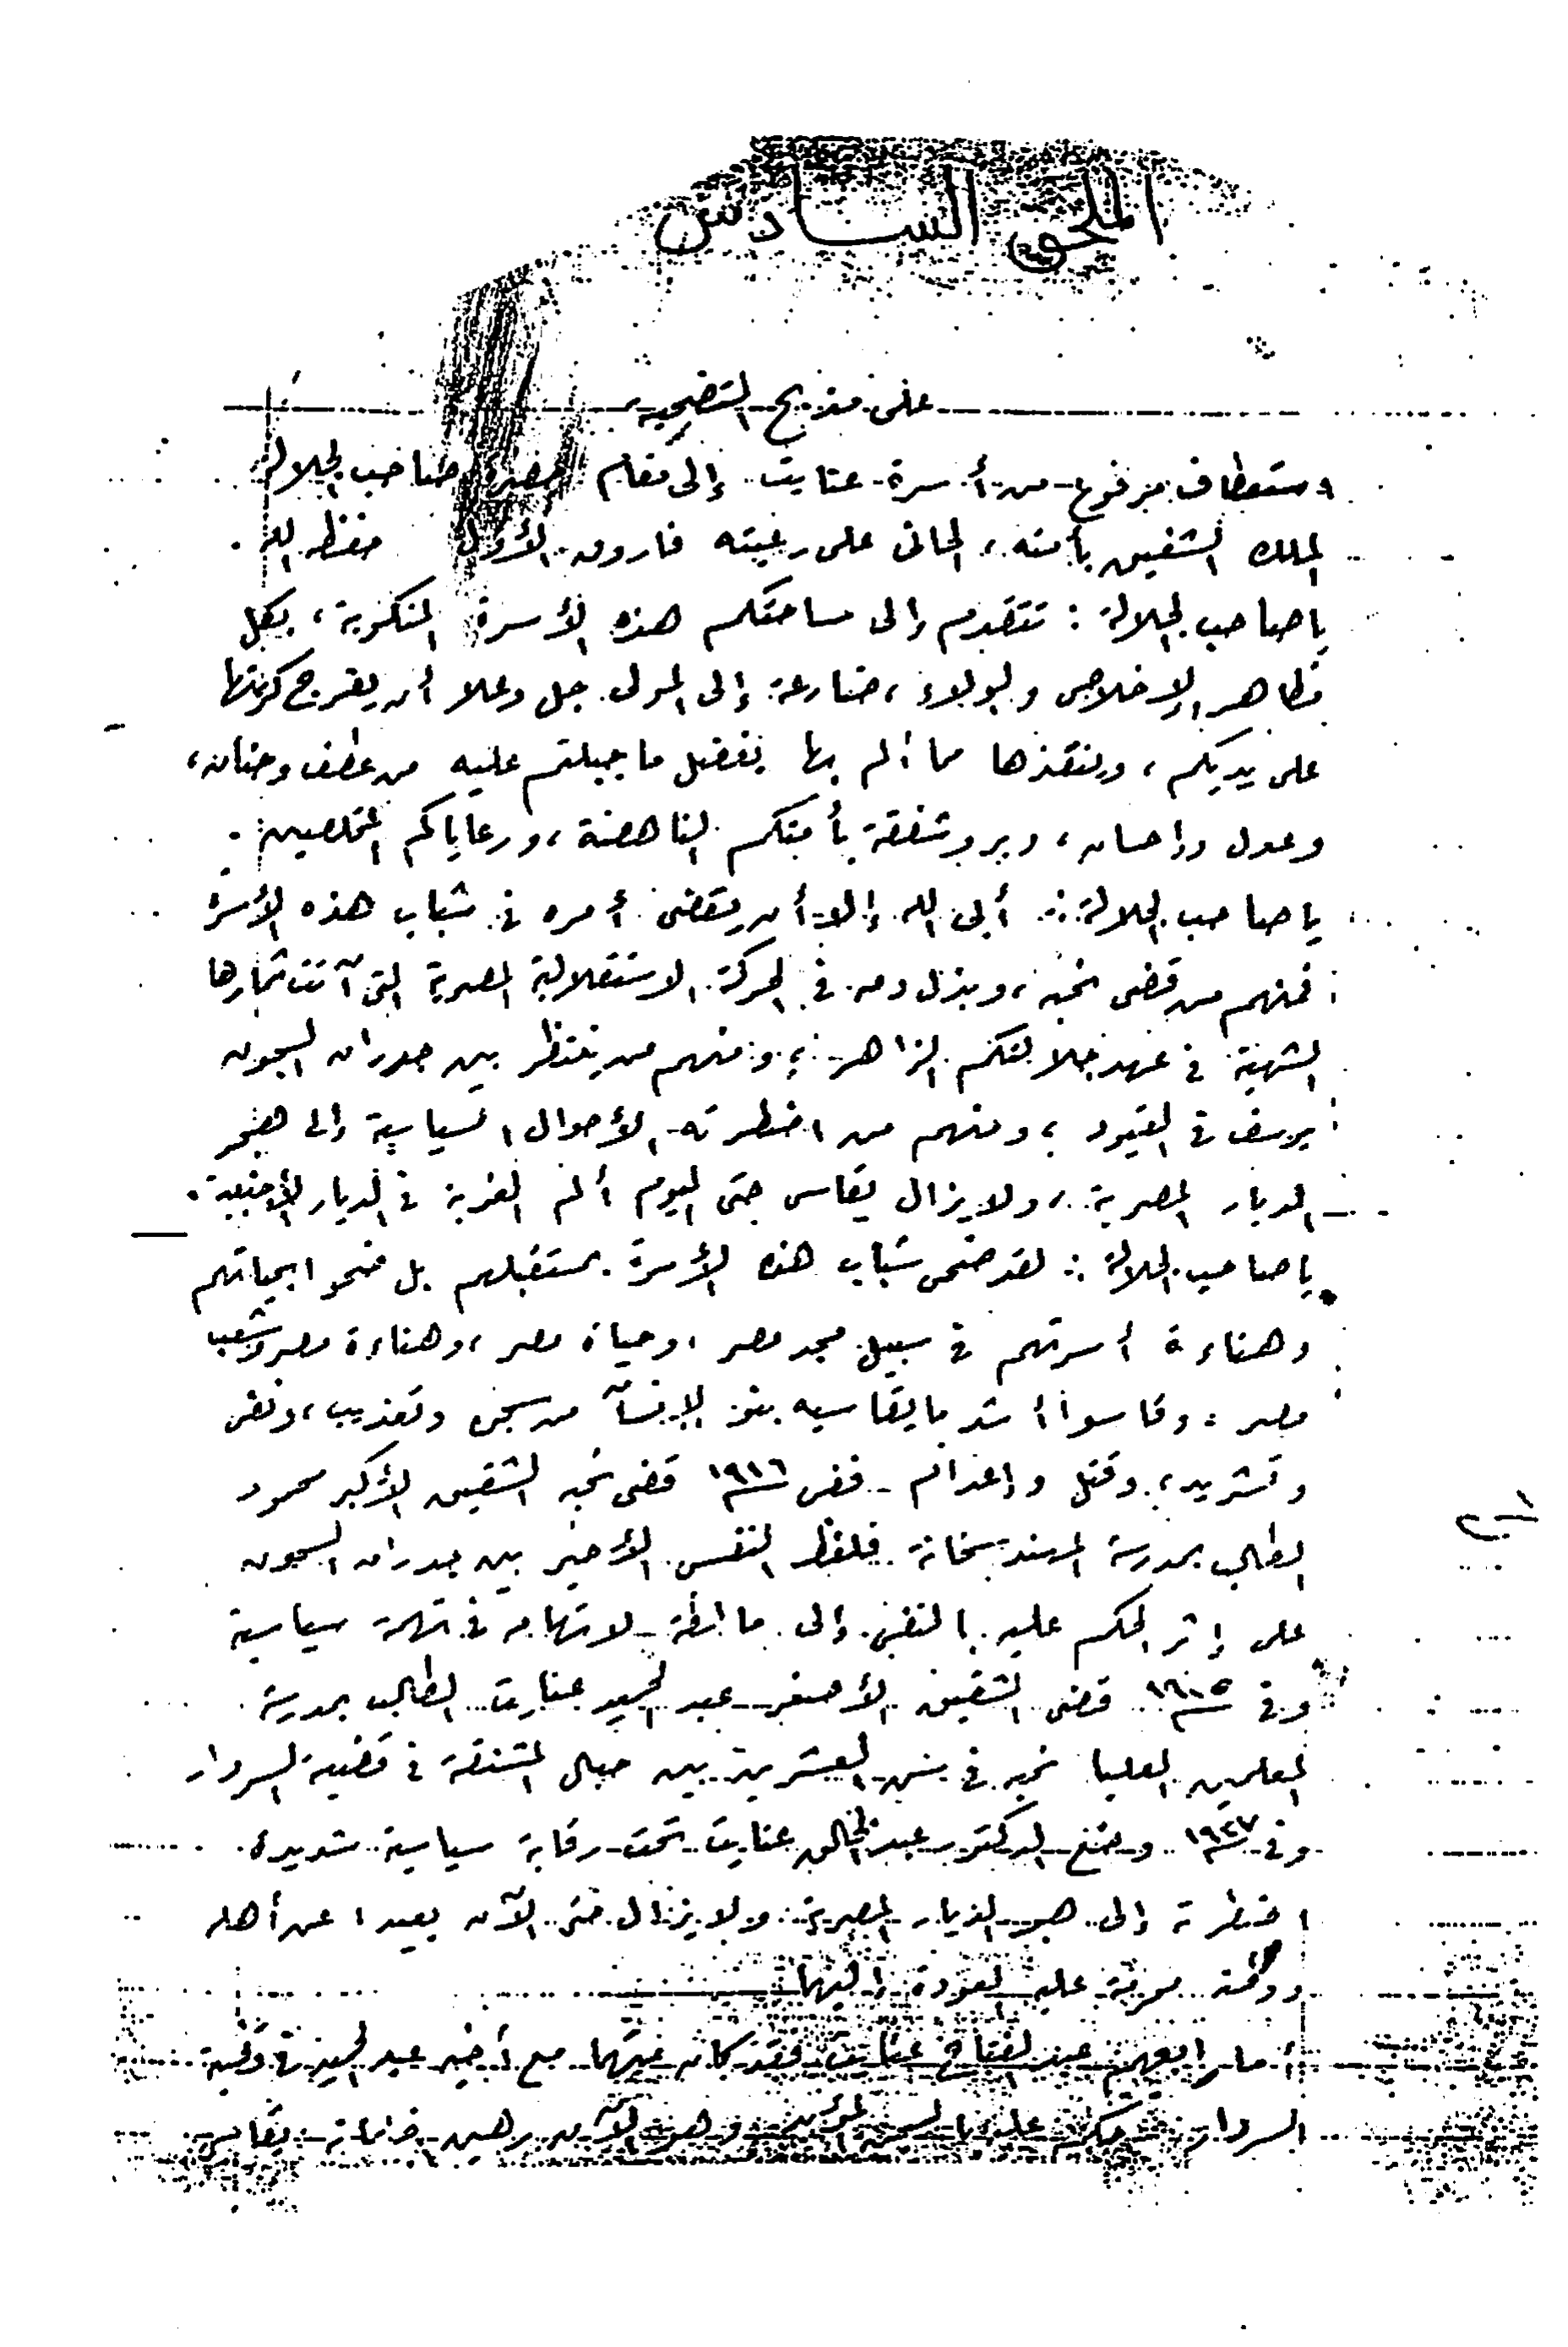 الملحق السادس
على مذبح التضحية
استعطاف مرفوع من أسرة عنايت إلى مقام حضرة صاحب الجلالة
الملك الشفيق بأمته، الحانى على رعيته فاروق الأول حفظه الله.
يا صاحب الجلالة : تتقدم إلى ساحتكم هذه الأسرة المنكوبة، بكل
مظاهر الإخلاص والولاء، ضارعة إلى المولى جل وعلا أن يفرج كربتها
على يديكم، وينقذها مما ألم بها بفضل ما جبلتم عليه من عطف وحنان،
وعدل وإحسان، وبر وشفقة بأمتكم الناهضة، ورعاياكم المخلصين.
يا صاحب الجلالة : أبى الله إلا أن يقضى أمره فى شباب هذه الأسرة
فمنهم من قضى نحبه، وبذل دمه فى الحركة الاستقلالية المصرية التى آتت ثمارها
الشهية فى عهد جلالتكم الزاهر؛ ومنهم من ينتظر بين جدران السجون
يرسف فى القيود، ومنهم من اضطرته الأحوال السياسية إلى هجر
الديار المصرية، ولا يزال يقاسى حتى اليوم ألم الغربة فى الديار الأجنبية.
يا صاحب الجلالة : لقد ضحى شباب هذه الأسرة بمستقبلهم بل ضحوا بحياتهم
وهناءة أسرتهم فى سبيل مجد مصر، وحياة مصر، وهناءة مصر وشعب
مصر، وقاسوا أشد ما يقاسيه بنو الإنسان من سجن وتعذيب، ونفى
وتشريد، وقتل وإعدام - ففى ١٩١٦ قضى نحبه الشقيق الأكبر محمود
الطالب بمدرسة المهندسخانة فلفظ النفس الأخير بين جدران السجون
على إثر الحكم عليه بالنفى إلى مالطة لاتهامه فى تهمة سياسية
وفى ١٩٢٥ قضى الشقيق الأصغر عبد الحميد عنايت الطالب بمدرسة
المعلمين العليا نحبه فى سن العشرين بين حبال المشنقة فى قضية السردار
وفى ١٩٢٧ وضع الدكتور عبد الخالق عنايت تحت رقابة سياسية شديدة
اضطرته إلى هجر الديار المصرية ولا يزال حتى الآن بعيدا عن أهله
محرمة عليه العودة إليها
أما رابعهم عبد الفتاح عنايت فقد كان متهما مع أخيه عبد الحميد فى قضية
السردار حكم عليه بالسجن المؤبد وهو الآن رهين يقاسى